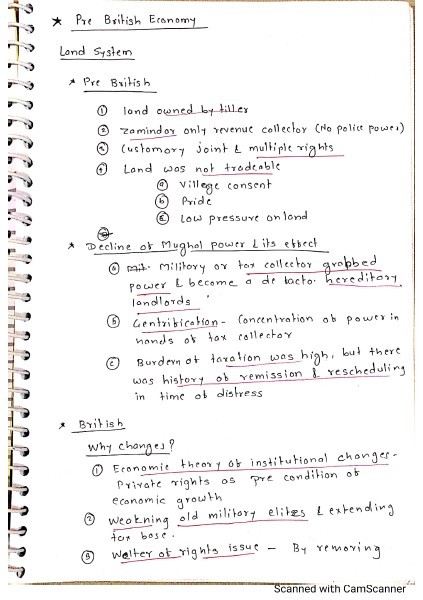 ★ Pre British Economy
Land System
★ Pre British
① land owned by tiller
② zamindar only revenue collector (No police power)
③ Customary joint & multiple rights
④ Land was not tradeable
ⓐ Village consent
ⓑ Pride
ⓒ Low pressure on land
★ Decline of Mughal power & its effect
ⓐ Military or tax collector grabbed
power & become a de facto hereditary
landlords
ⓑ Gentrification - Concentration of power in
hands of tax collector
ⓒ Burden of taxation was high, but there
was history of remission & rescheduling
in time of distress
★ British
Why changes?
① Economic theory of institutional changes -
Private rights as pre condition of
economic growth
② Weakning old military elites & extending
tax base.
③ Welter of rights issue - By removing
Scanned with CamScanner